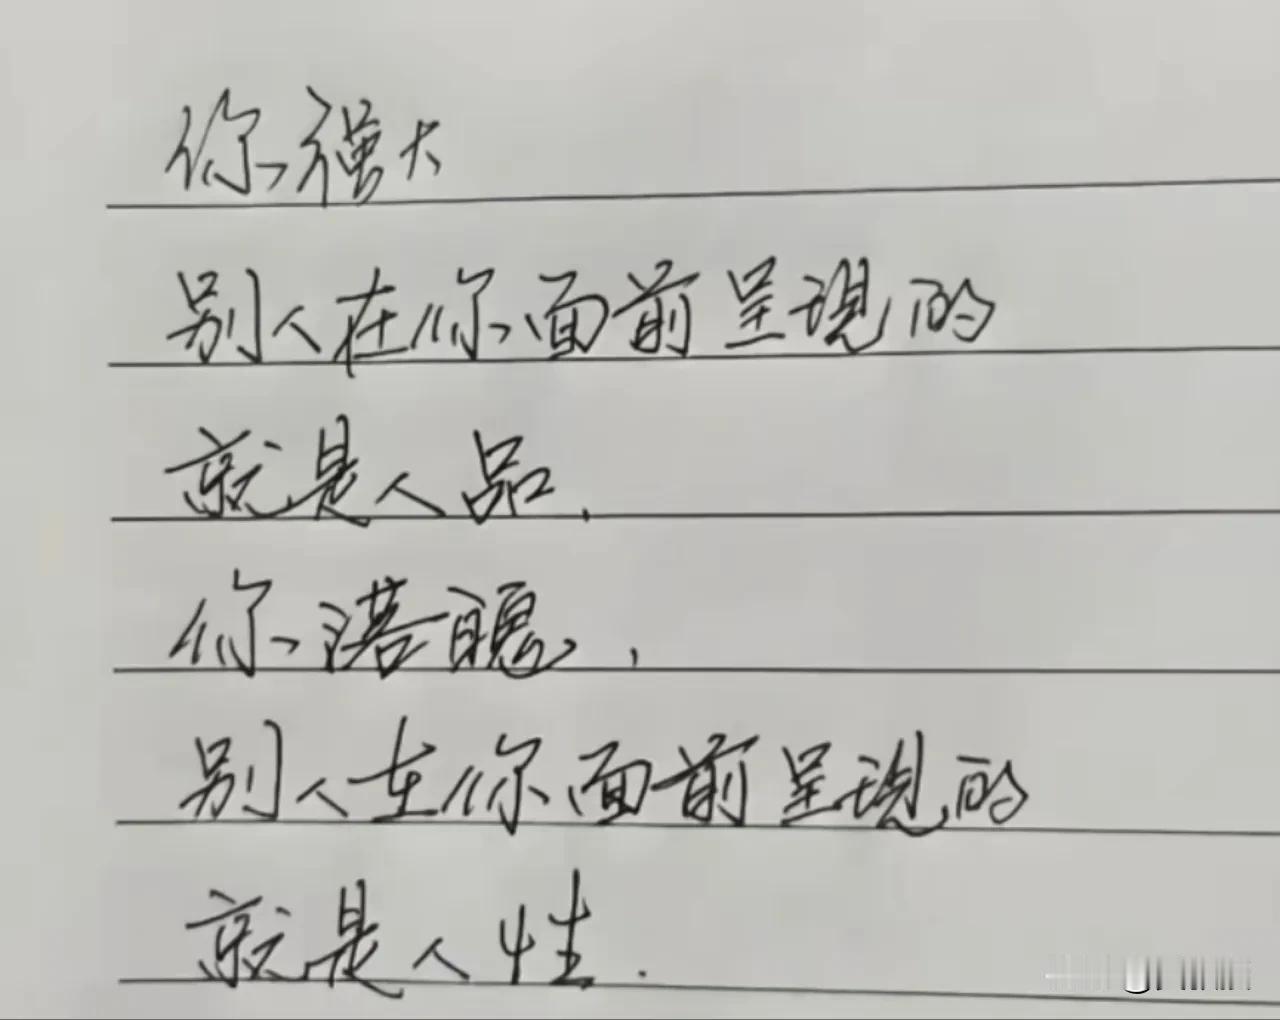 你强大
别人在你面前呈现的
就是人品，
你落魄，
别人在你面前呈现的
就是人性.